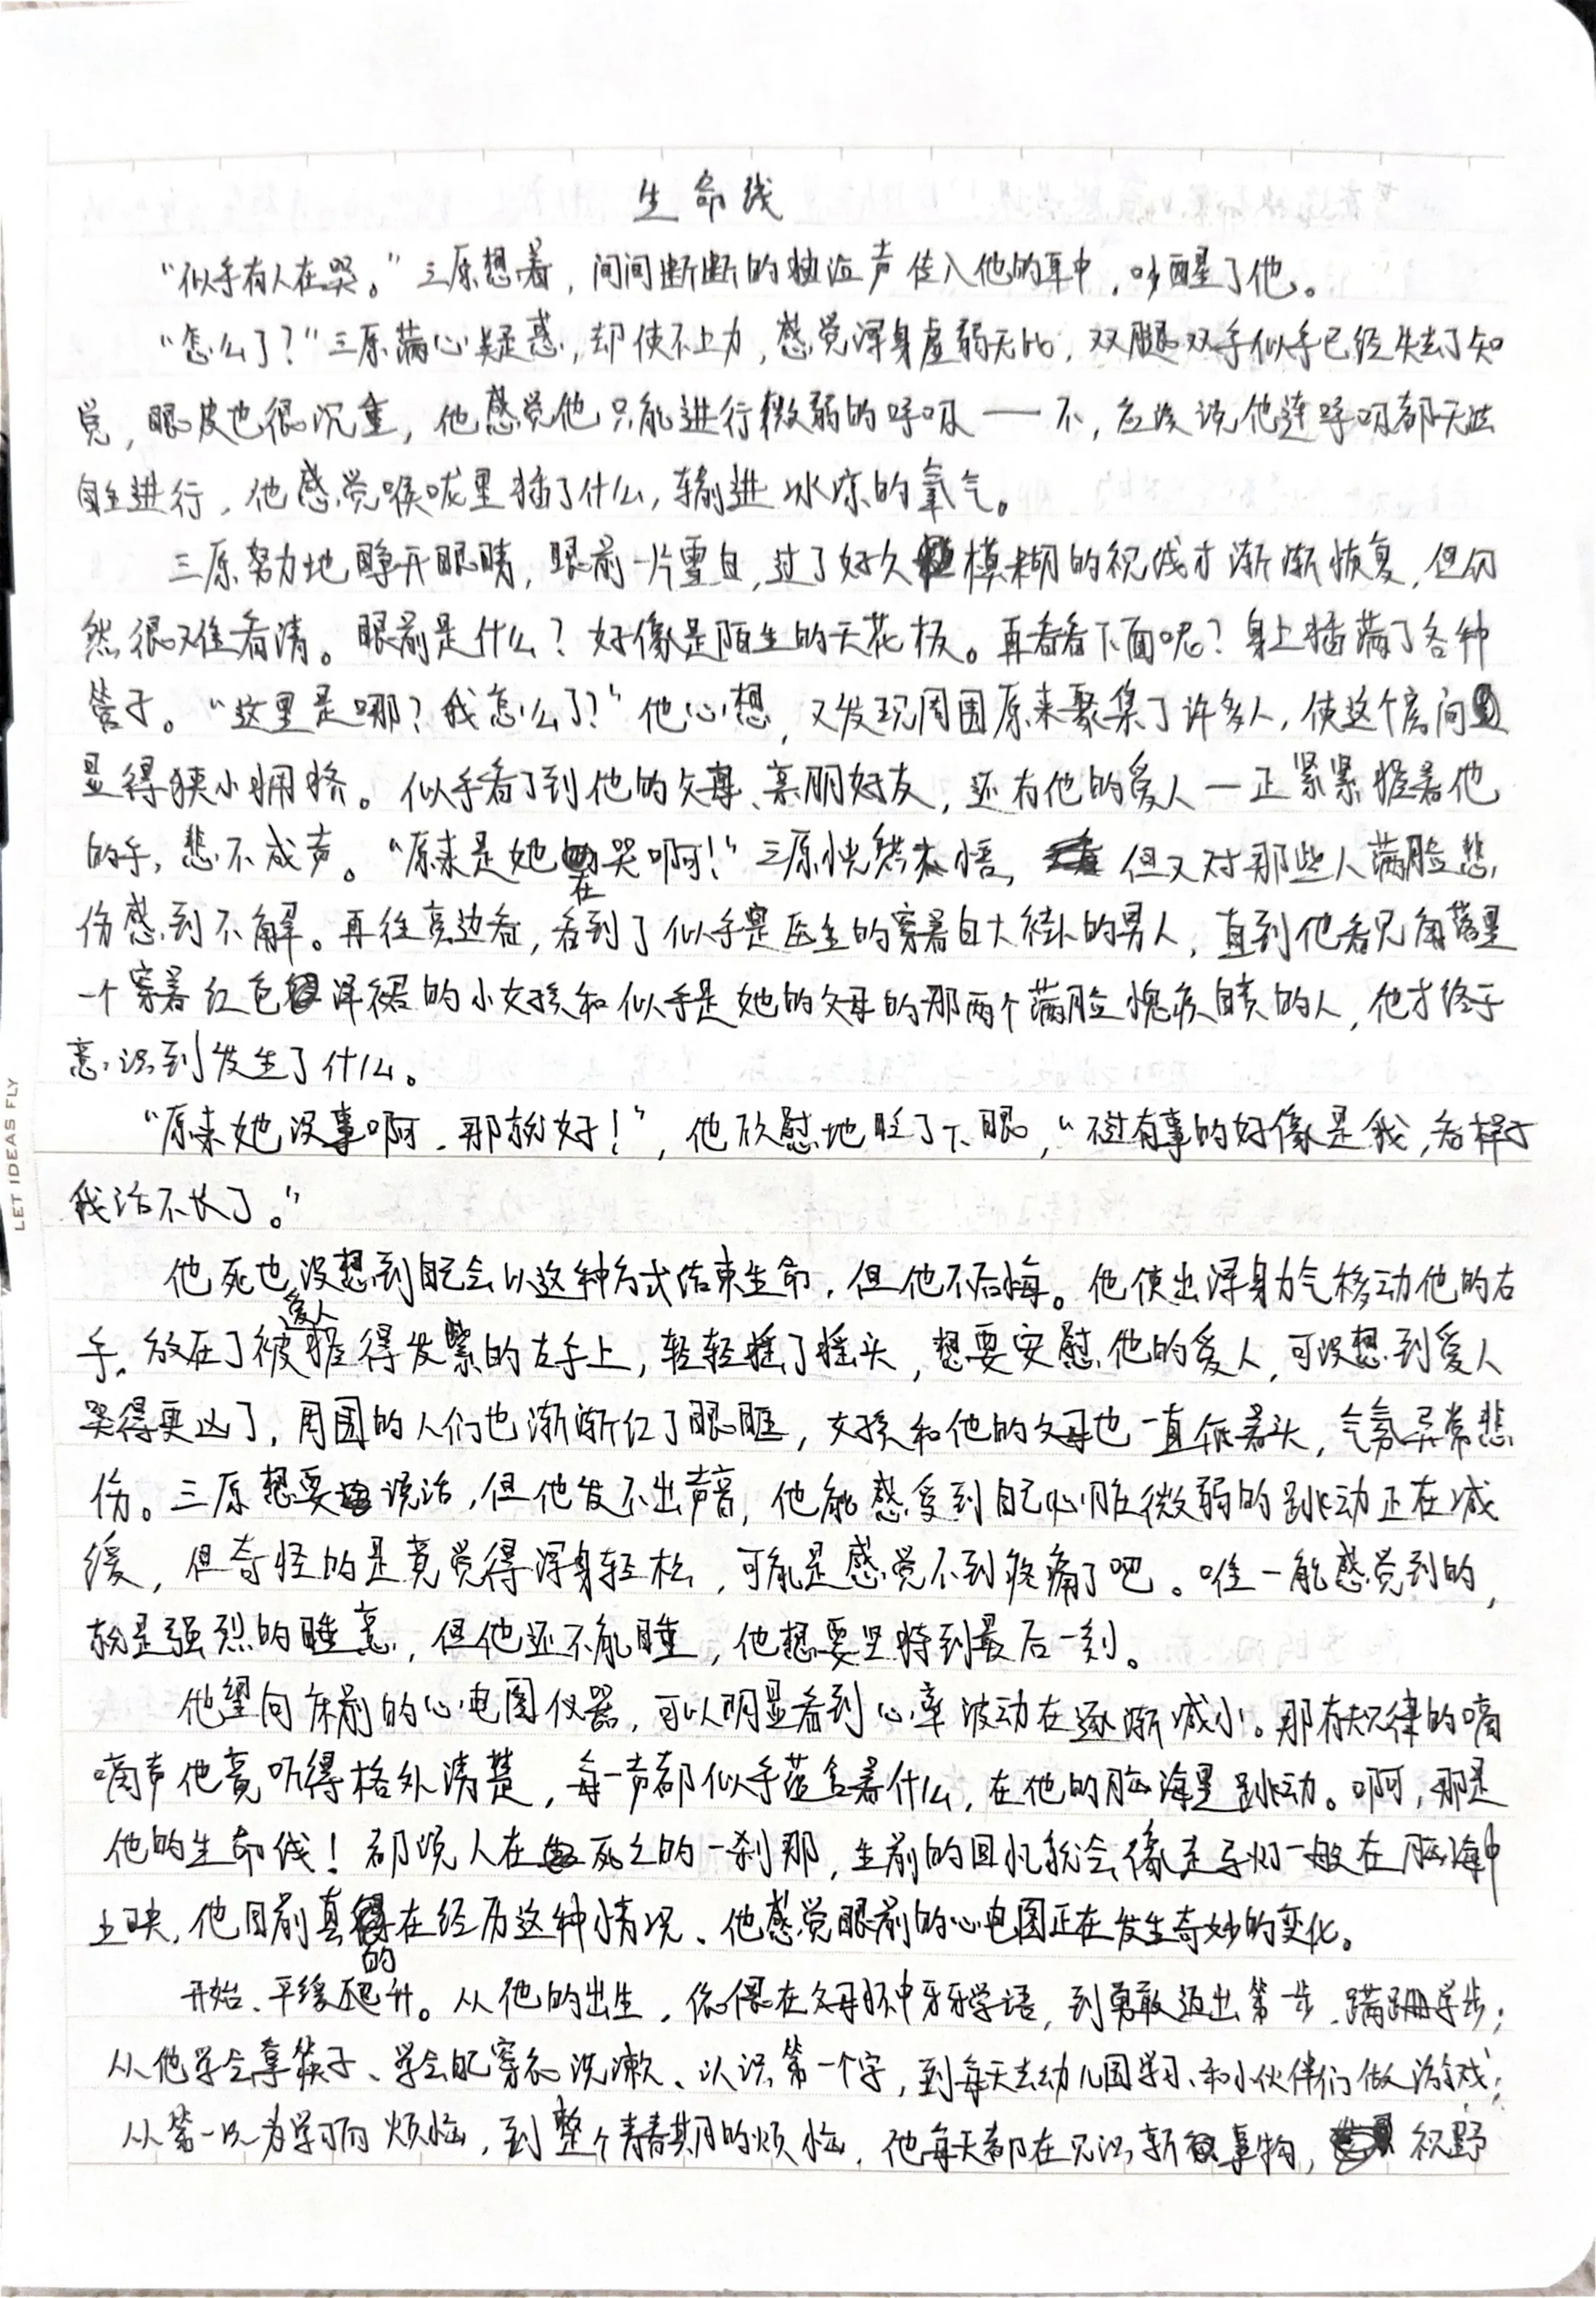 生命线
“似乎有人在哭。”三原想着，间间断断的抽泣声传入他的耳中，吵醒了他。
“怎么了？”三原满心疑惑，却使不上力，感觉浑身虚弱无比，双腿双手似乎已经失去了知
觉，眼皮也很沉重，他感觉他只能进行微弱的呼吸——不，应该说他连呼吸都无法
自主进行，他感觉喉咙里插了什么，输进冰凉的氧气。
三原努力地睁开眼睛，眼前一片雪白，过了好久模糊的视线才渐渐恢复，但仍
然很难看清。眼前是什么？好像是陌生的天花板。再看看下面呢？身上插满了各种
管子。“这里是哪？我怎么了？”他心想，又发现周围原来聚集了许多人，使这个房间
显得狭小拥挤。似乎看到了他的父母、亲朋好友，还有他的爱人—正紧紧握着他
的手，悲不成声。“原来是她在哭啊！”三原恍然大悟，但又对那些人满脸悲
伤感到不解。再往旁边看，看到了似乎是医生的穿着白大褂的男人，直到他看见角落里
一个穿着红色洋裙的小女孩和似乎是她的父母的那两个满脸愧疚自责的人，他才终于
意识到发生了什么。
“原来她没事啊，那就好！”，他欣慰地眨了下眼，“不过有事的好像是我，看样子
我活不长了。”
他死也没想到自己会以这种方式结束生命，但他不后悔。他使出浑身力气移动他的右
手，放在了被爱人握得发紫的左手上，轻轻摇了摇头，想要安慰他的爱人，可没想到爱人
哭得更凶了，周围的人们也渐渐红了眼眶，女孩和他的父母也一直低着头，气氛异常悲
伤。三原想要说话，但他发不出声音，他能感受到自己心脏微弱的跳动正在减
缓，但奇怪的是竟觉得浑身轻松，可能是感觉不到疼痛了吧。唯一能感觉到的，
就是强烈的睡意，但他还不能睡，他想要坚持到最后一刻。
他望向床前的心电图仪器，可以明显看到心率波动在逐渐减小。那有规律的嘀
嘀声他竟听得格外清楚，每一声都似乎蕴含着什么，在他的脑海里跳动。啊，那是
他的生命线！都说人在死之的一刹那，生前的回忆就会像走马灯一般在脑海中
上映，他目前真的在经历这种情况、他感觉眼前的心电图正在发生奇妙的变化。
开始、平缓爬升。从他的出生，依偎在父母怀中牙牙学语，到勇敢迈出第一步，蹒跚学步；
从他学会拿筷子、学会自己穿衣洗漱、认识第一个字，到每天去幼儿园学习、和小伙伴们做游戏；
从第一次为学习而烦恼，到整个青春期的烦恼，他每天都在见识新事物，视野
LET IDEAS FLY